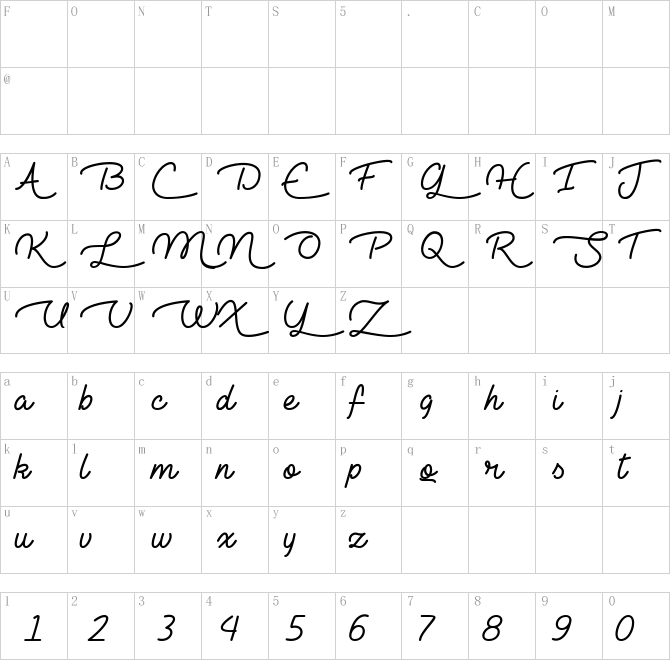 F O N T S 5 . C O M
@
A B C D E F G H I J
A B C D E F G H I J
K L M N O P Q R S T
K L M N O P Q R S T
U V W X Y Z
U V W X Y Z
a b c d e f g h i j
a b c d e f g h i j
k l m n o p q r s t
k l m n o p q r s t
u v w x y z
u v w x y z
1 2 3 4 5 6 7 8 9 0
1 2 3 4 5 6 7 8 9 0